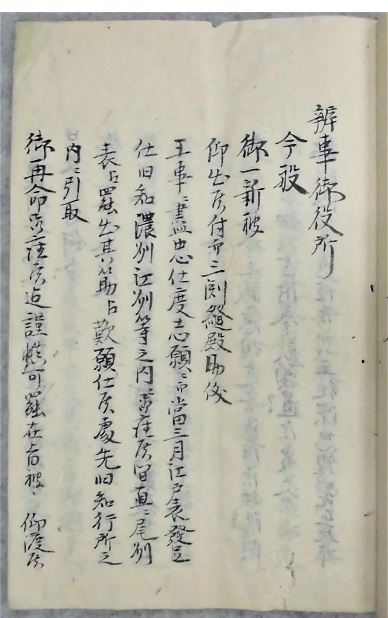 辨事御役所
今般
御一新被
仰出候付而三淵縫殿助儀
王事ニ盡忠仕度志願ニ而當三月江戸表發足
仕旧知濃州江州等之内ニ罷在候間直ニ尾州
表江罷出其筋江歎願仕候處先旧知行所之
内ニ引取
御再命迄謹慎可罷在旨被仰渡候